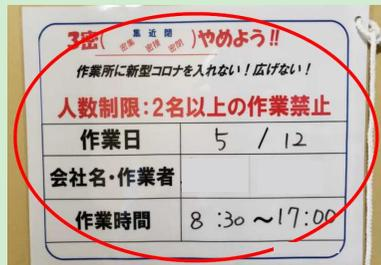 3密( 集近閉 密集 密接 密閉 )やめよう!!
作業所に新型コロナを入れない！広げない！
人数制限：2名以上の作業禁止
作業日 5 / 12
会社名・作業者
作業時間 8:30〜17:00